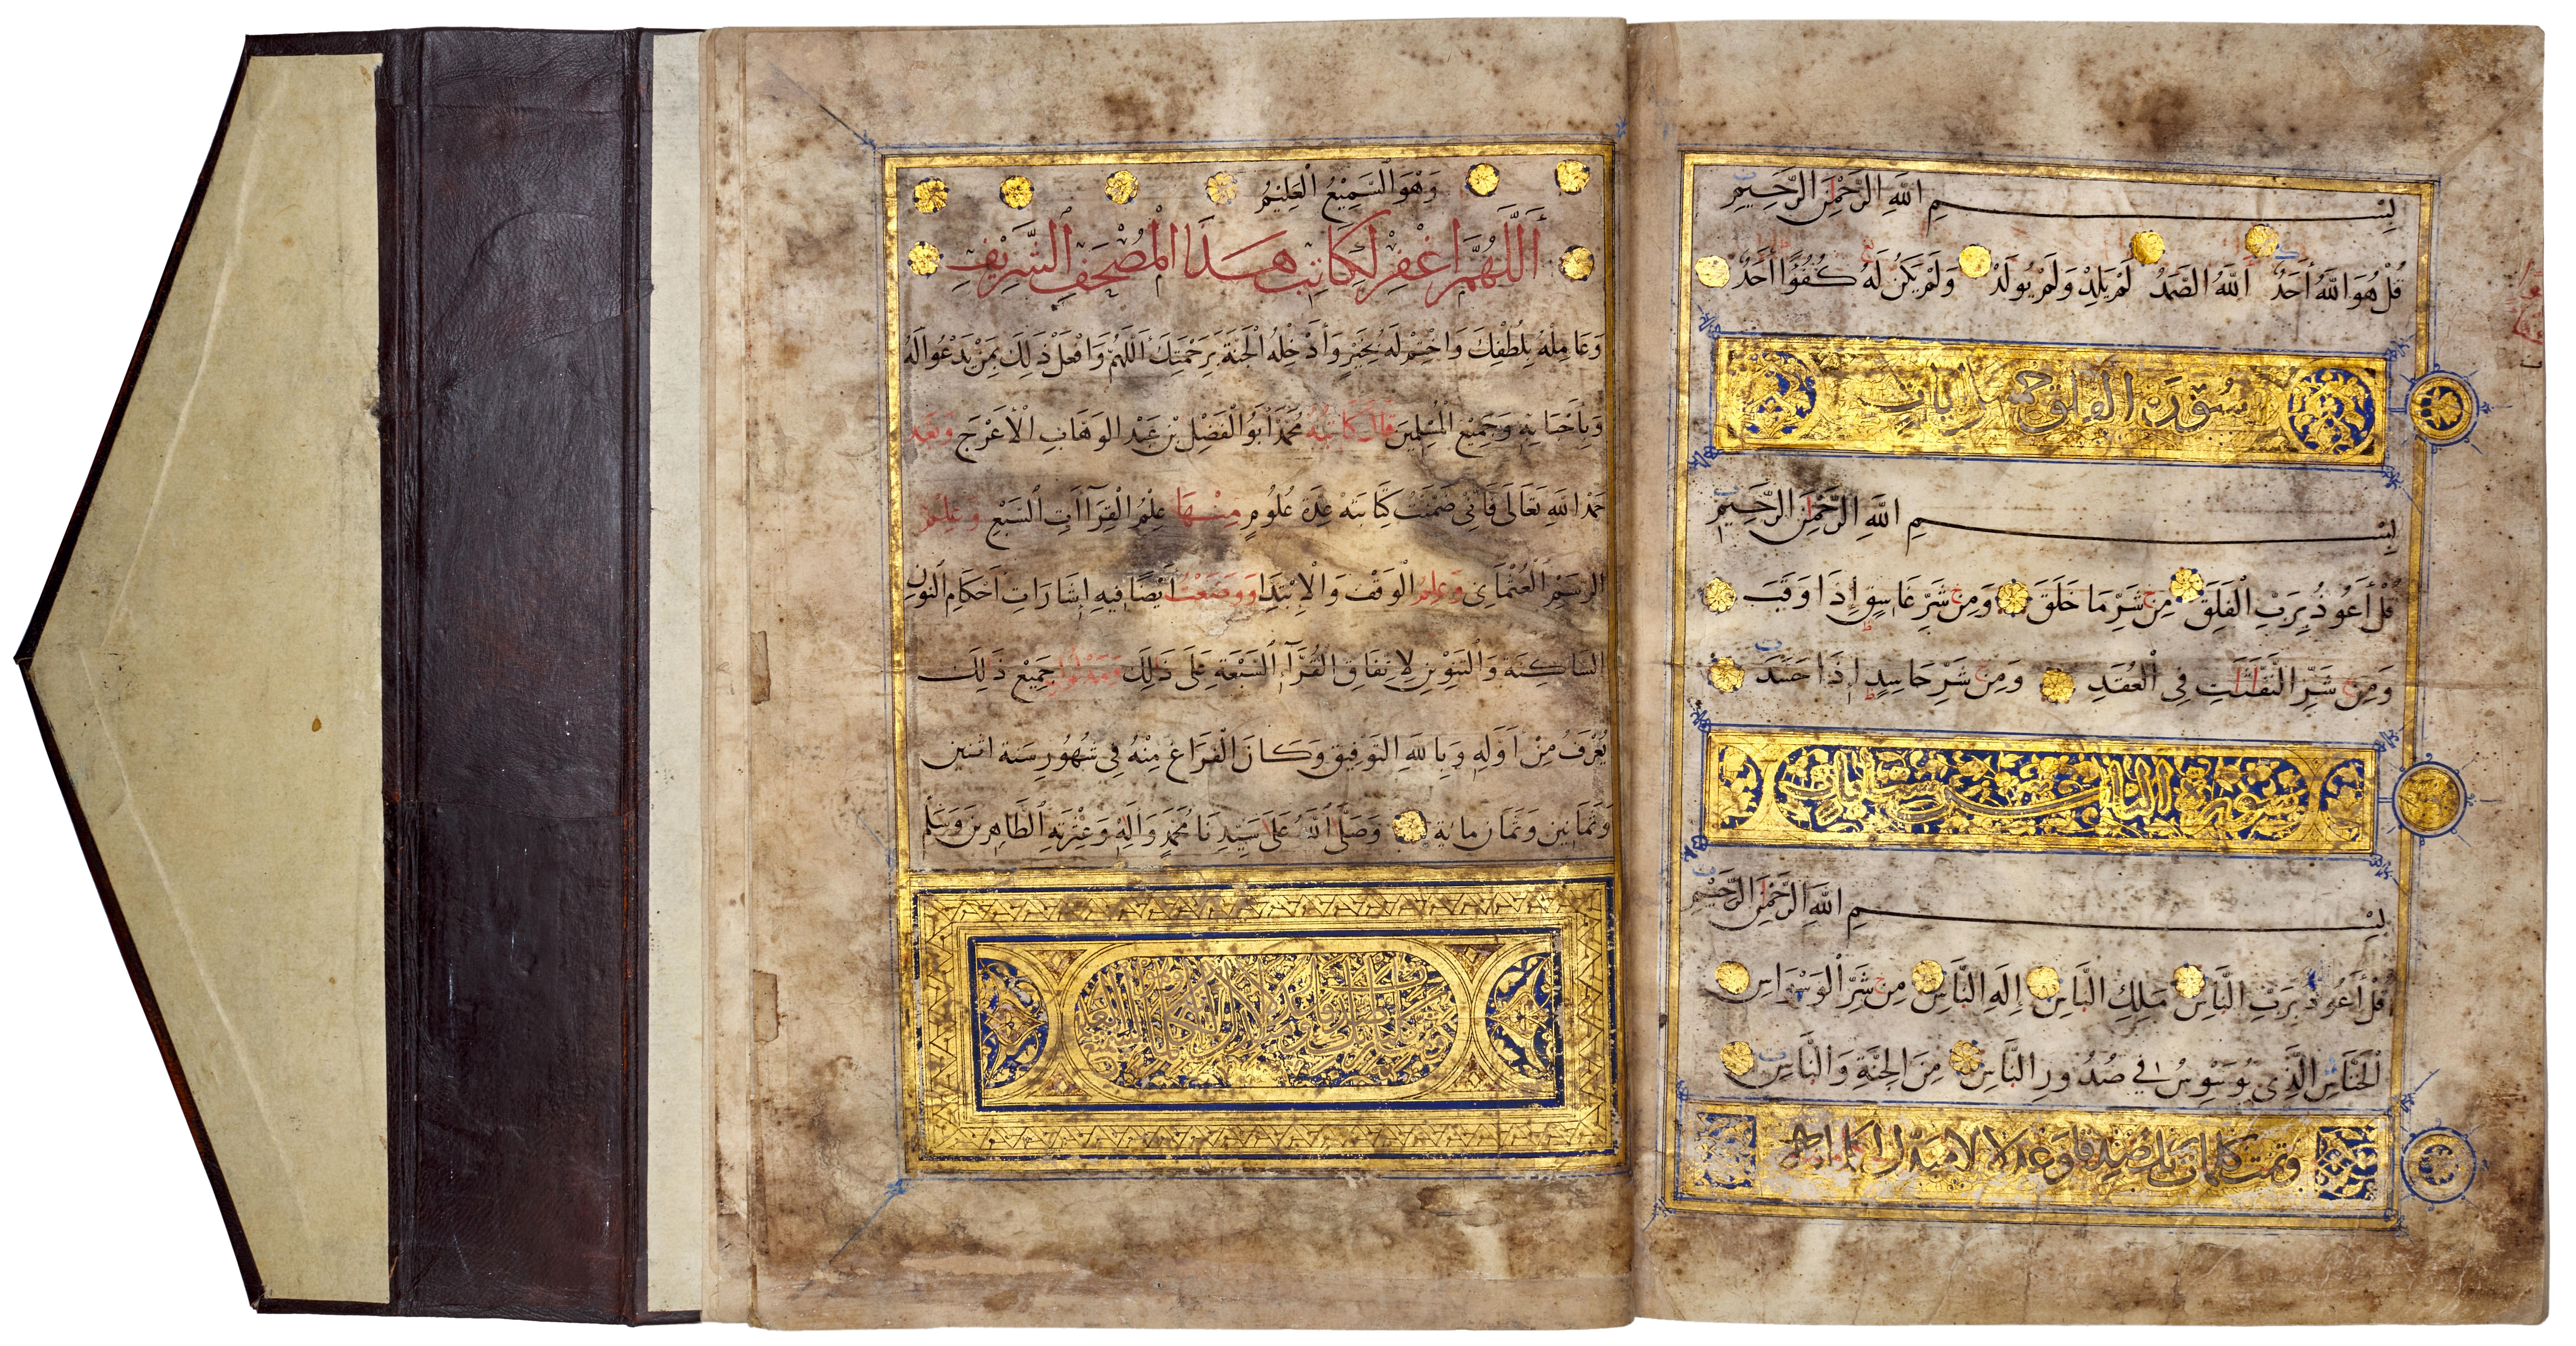 بِسْمِ اللَّهِ الرَّحْمَٰنِ الرَّحِيمِ
قُلْ هُوَ اللَّهُ أَحَدٌ اللَّهُ الصَّمَدُ لَمْ يَلِدْ وَلَمْ يُولَدْ وَلَمْ يَكُنْ لَهُ كُفُوًا أَحَدٌ
سورة الفلق خمس آيات
بِسْمِ اللَّهِ الرَّحْمَٰنِ الرَّحِيمِ
قُلْ أَعُوذُ بِرَبِّ الْفَلَقِ مِن شَرِّ مَا خَلَقَ وَمِن شَرِّ غَاسِقٍ إِذَا وَقَبَ
وَمِن شَرِّ النَّفَّٰثَٰتِ فِي الْعُقَدِ وَمِن شَرِّ حَاسِدٍ إِذَا حَسَدَ
سورة الناس ست آيات
بِسْمِ اللَّهِ الرَّحْمَٰنِ الرَّحِيمِ
قُلْ أَعُوذُ بِرَبِّ النَّاسِ مَلِكِ النَّاسِ إِلَٰهِ النَّاسِ مِن شَرِّ الْوَسْوَاسِ
الْخَنَّاسِ الَّذِي يُوَسْوِسُ فِي صُدُورِ النَّاسِ مِنَ الْجِنَّةِ وَالنَّاسِ
وتمت كلمات ربك صدقا وعدلا لا مبدل لكلماته
وَهُوَ السَّمِيعُ الْعَلِيمُ
أَللَّهُمَّ اغْفِرْ لِكَاتِبِ هَٰذَا الْمُصْحَفِ الشَّرِيفِ
وَعَامِلْهُ بِلُطْفِكَ وَاخْتِمْ لَهُ بِخَيْرٍ وَأَدْخِلْهُ الْجَنَّةَ بِرَحْمَتِكَ اللَّهُمَّ وَافْعَلْ ذَلِكَ بِمَنْ يَدْعُوا لَهُ
وَبِأَحْبَابِهِ وَجَمِيعِ الْمُسْلِمِينَ قَالَ كَاتِبُهُ مُحَمَّدٌ أَبُو الْفَضْلِ بْنِ عَبْدِ الْوَهَّابِ الْأَعْرَجِ وَبَعْدَ
حَمْدِ اللَّهِ تَعَالَى فَإِنِّي ضَمَّنْتُ كِتَابَتَهُ عِدَّةَ عُلُومٍ مِنْهَا عِلْمُ الْقِرَاآتِ السَّبْعِ وَعِلْمُ
الرَّسْمِ الْعُثْمَانِي وَعِلْمُ الْوَقْفِ وَالْإِبْتِدَا وَوَضَعْتُ أَيْضًا فِيهِ إِشَارَاتِ أَحْكَامِ النُّونِ
السَّاكِنَةِ وَالتَّنْوِينِ لِاتِّفَاقِ الْقُرَّآءِ السَّبْعَةِ عَلَى ذَلِكَ جَمِيعُ ذَلِكَ
يُعْرَفُ مِنْ أَوَّلِهِ وَبِاللَّهِ التَّوْفِيقِ وَكَانَ الْفَرَاغُ مِنْهُ فِي شُهُورِ سَنَةِ اثْنَيْنِ
وَثَمَانِينَ وَثَمَانِ مِائَةٍ وَصَلَّى اللَّهُ عَلَى سَيِّدِنَا مُحَمَّدٍ وَآلِهِ وَعِتْرَتِهِ الطَّاهِرِينَ وَسَلَّمَ